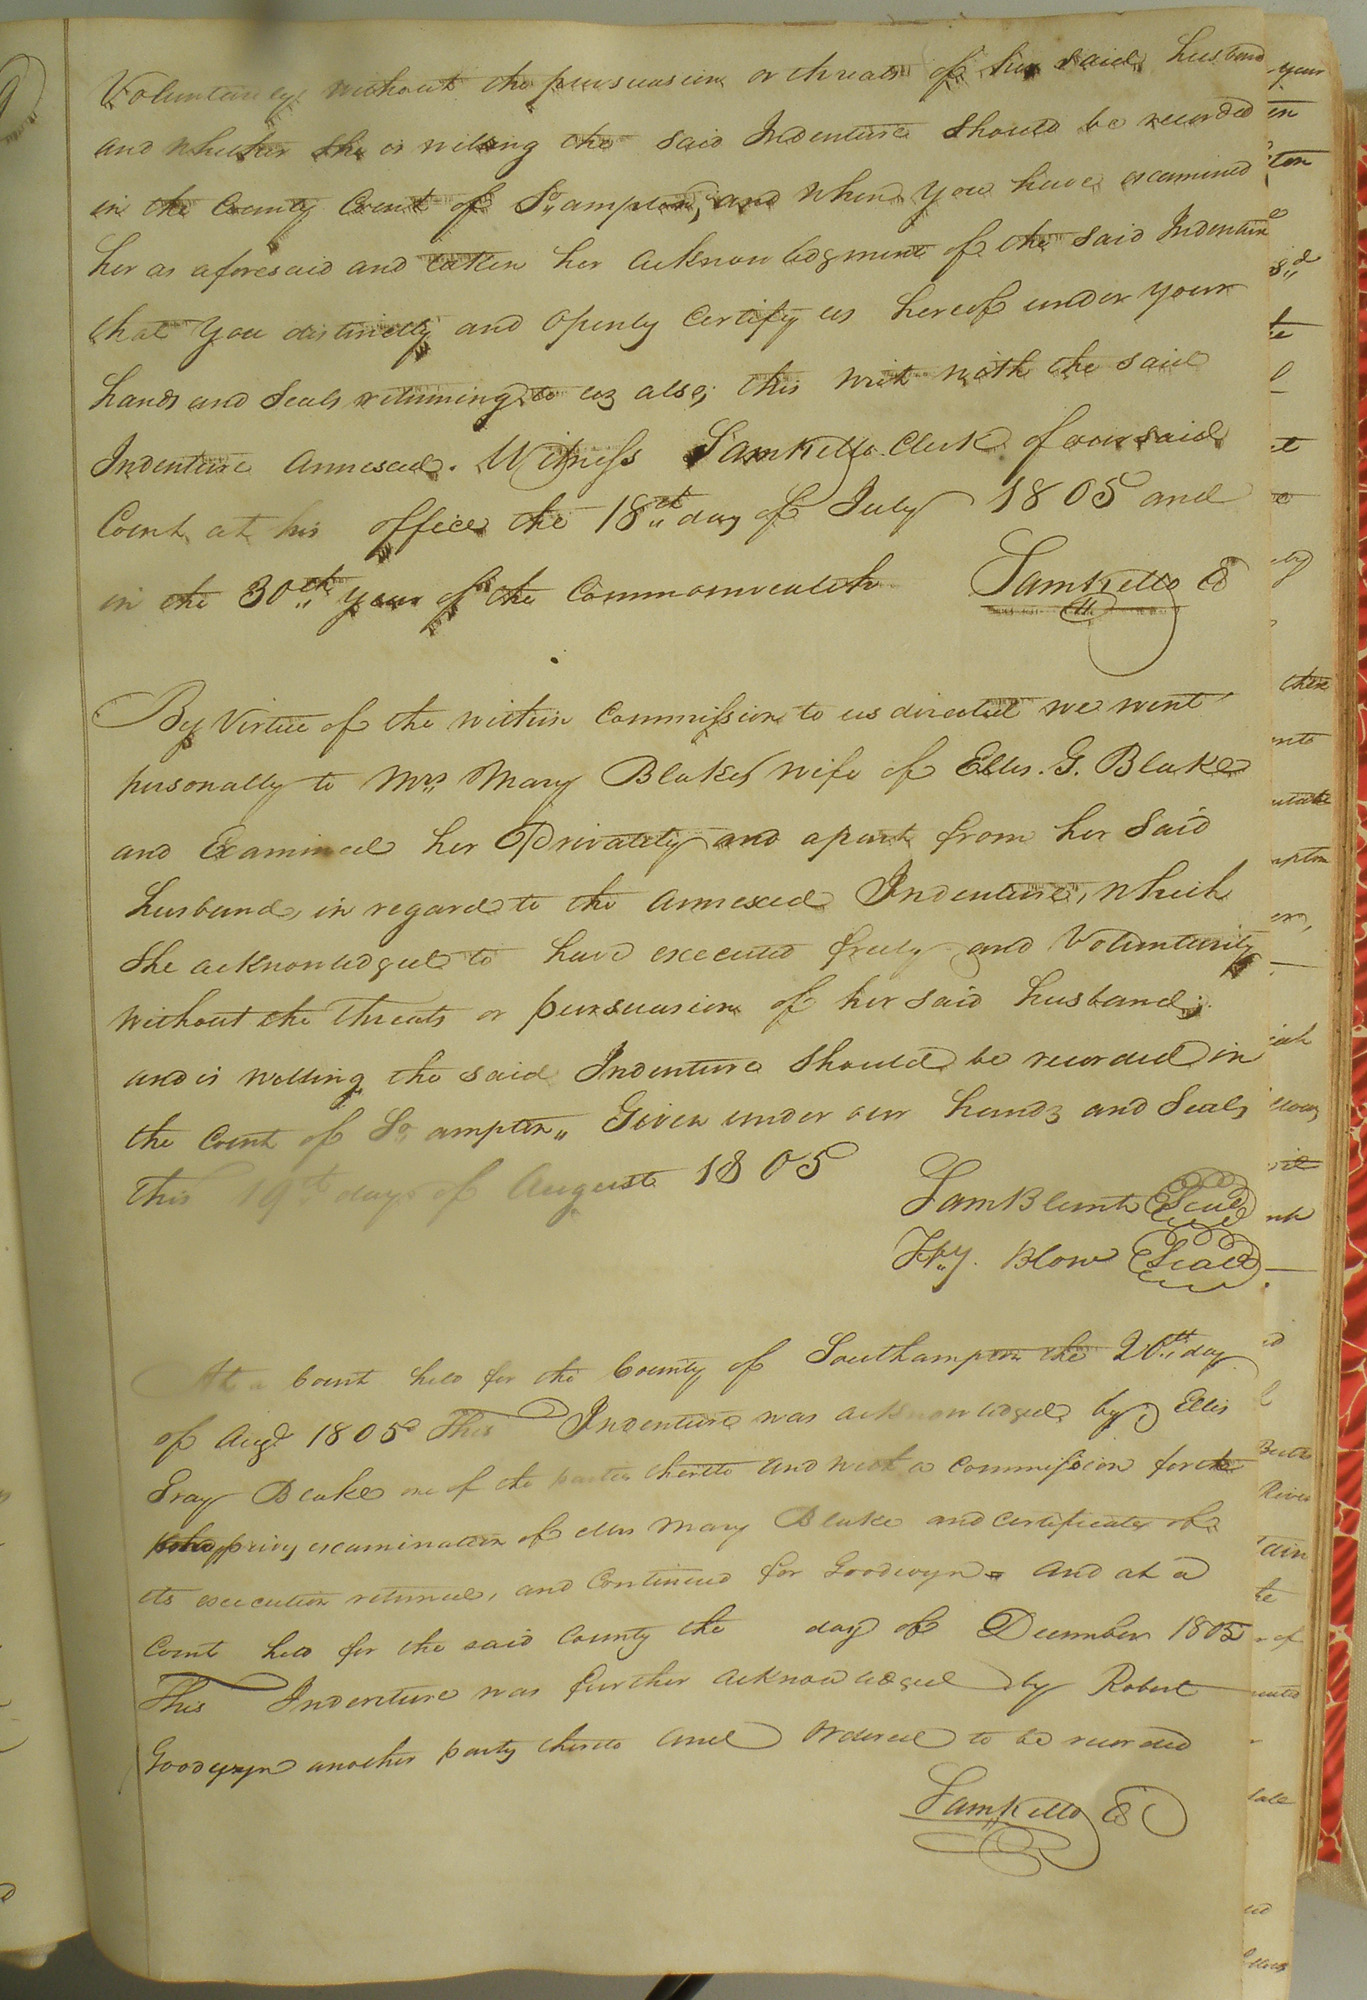 Voluntarily without the pursuasion or threats of her said husband
and whether she is willing the said Indenture should be recorded
in the County Court of So,,ampton, and when you have examined
her as aforesaid and taken her acknowledgment of the said Indenture
that you distinctly and openly certify us hereof under your
hands and Seals returning to us also, this writ with the said
Indenture annexed. Witness Saml Kello Clerk of our said
Court at his office the 18th day of July 1805 and
in the 30th year of the Commonwealth Saml Kello CC
By Virtue of the within Commission to us directed we went
personally to Mrs. Mary Blake, wife of Ellis. G. Blake
and Examined her Privately and apart from her Said
husband, in regard to the annexed Indenture, which
She acknowledged to have executed freely and Voluntarily
without the threats or pursuasion of her said husband,
and is willing the said Indenture should be recorded in
the Court of So ampton,, Given under our hands and Seals
this 19th day of August 1805
Sam Blunt Seal
Hy. Blow Seal
At a Court held for the County of Southampton the 20th day
of Augt 1805 This Indenture was acknowledged by Ellis
Gray Blake one of the parties thereto and with a commission for the
privy examination of Mrs Mary Blake and certificate of
its execution returned, and Continued for Goodwyn = And at a
Court held for the said County the day of December 1805
This Indenture was further acknowledged by Robert
Goodwyn another party thereto and Ordered to be recorded
Saml Kello CC